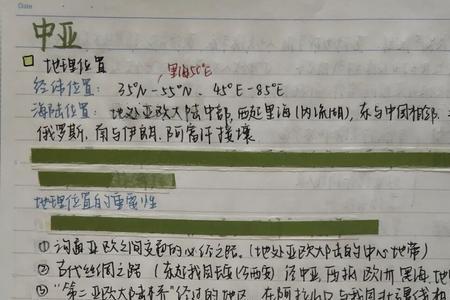 Date
中亚
地理位置
里海50°E
经纬位置： 35°N-55°N. 45°E-85°E
海陆位置： 地处亚欧大陆中部，西延里海(内流湖)，东与中国相邻.
俄罗斯. 南与伊朗. 阿富汗接壤.
地理位置的重要性
①沟通亚欧之间交通的必经之路. (地处亚欧大陆的中心地带)
②古代丝绸之路 (东起我国长安(今西安) 经中亚, 西抵欧洲 黑海、地
③"第二亚欧大陆桥"经过的地区. 在阿拉山口与我国